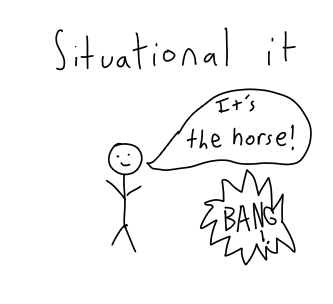 Situational it
It's
the horse!
BANG
!